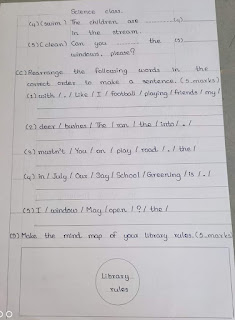 Science class.
(4) (swim) The children are ............ (4)............
in the stream.
(5) (clean) Can you ............ the (5)............
windows, please?
(C) Rearrange the following words in the
correct order to make a sentence. (5 marks)
(1) with / . / Like / I / football / playing / friends / my /
(2) deer / bushes / The / ran / the / into / . /
(3) mustn't / You / on / play / road / . / the /
(4) In / July / Our / Say / School / Greening / is / . /
(5) I / window / May / open / ? / the /
(D) Make the mind map of your library rules. (5 marks)
Library
rules